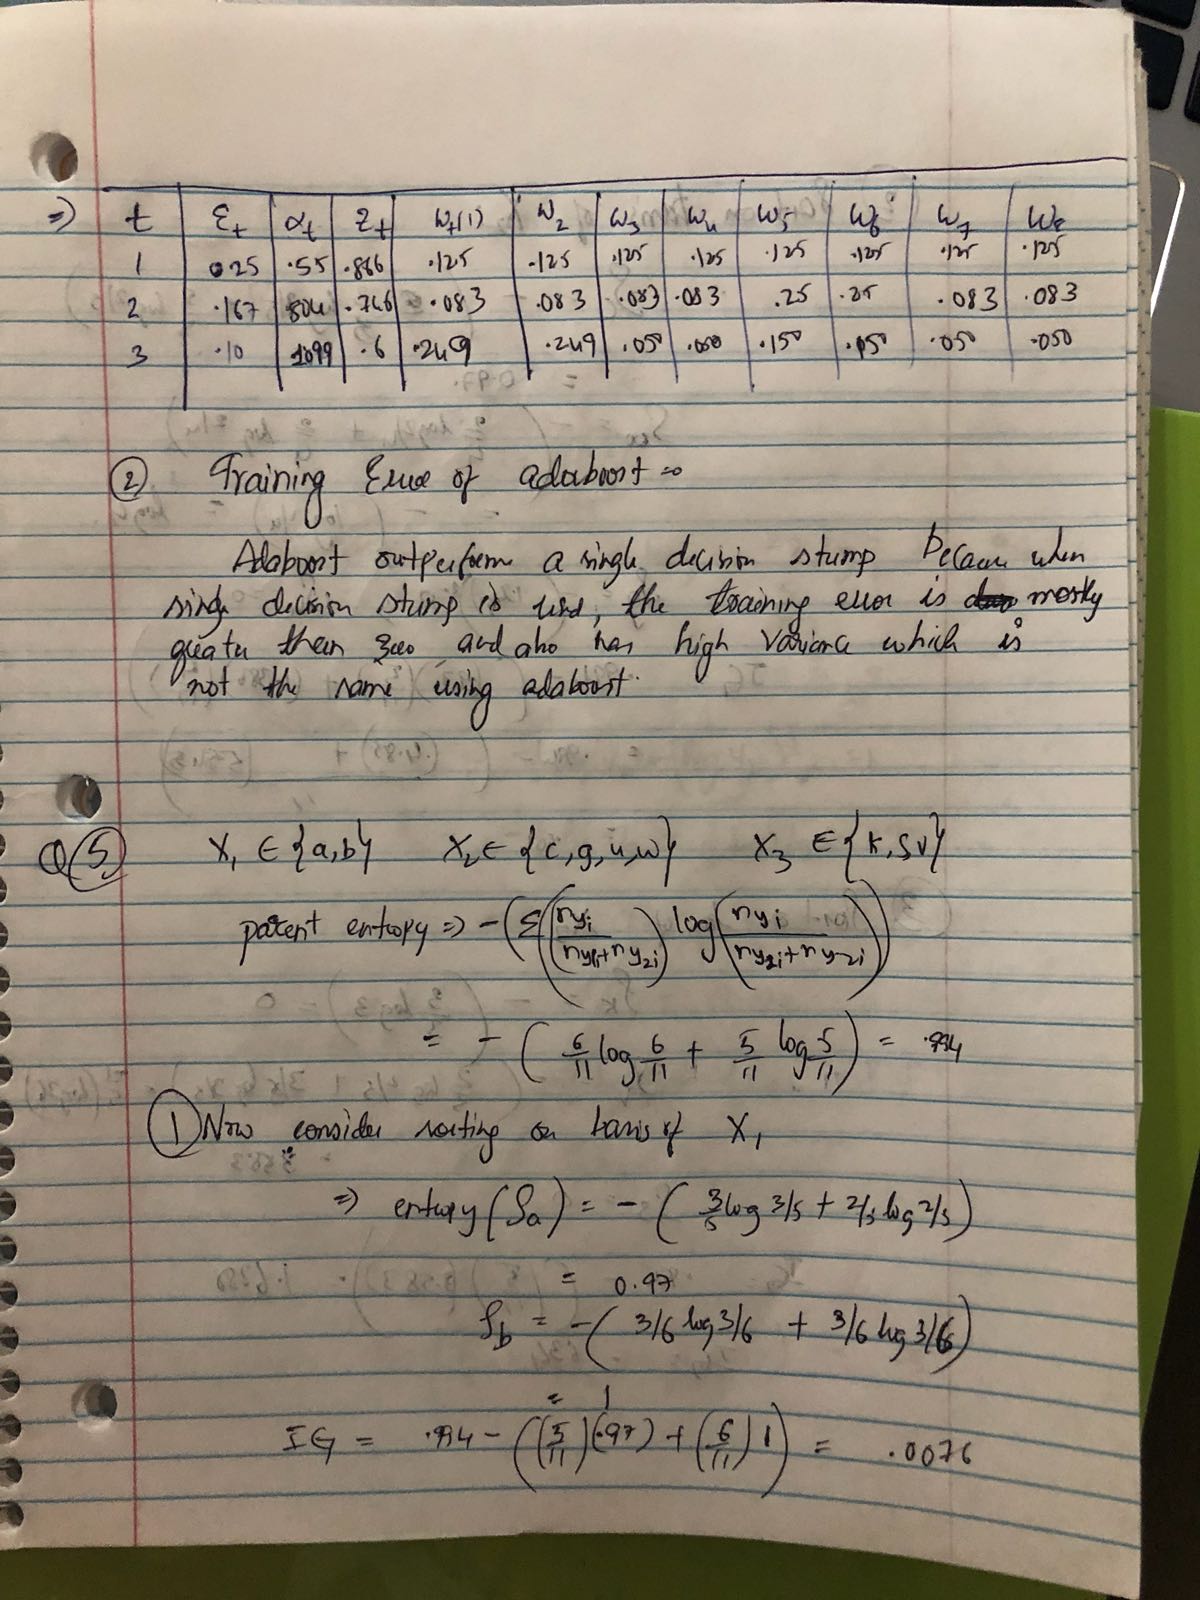 => t Ɛt αt Zt Wt(1) W2 W3 W4 W5 W6 W7 W8
1 0.25 .55 .866 .125 .125 .125 .125 .125 .125 .125 .125
2 .167 804 .746 .083 .083 .083 .083 .25 .25 .083 .083
3 .10 1099 .6 .249 .249 .050 .050 .150 .150 .050 .050
② Training Error of adaboost =>
Adaboost outperform a single decision stump because when
single decision stump is used, the training error is mostly
greater than zero and also has high variance which is
not the same using adaboost.
Q⑤ X1 ∈ {a,b} X2 ∈ {c,g,u,w} X3 ∈ {k,s,v}
parent entropy => -(Σ(nyi/(ny1i+ny2i)) log(nyi/(ny2i+ny2i)))
= -(6/11 log 6/11 + 5/11 log 5/11) = .994
① Now consider sorting on basis of X1
=> entropy (Sa) = -(3/5 log 3/5 + 2/5 log 2/5)
= 0.97
Sb = -(3/6 log 3/6 + 3/6 log 3/6)
= 1
IG = .994 - ((5/11)(.97) + (6/11) 1) = .0076